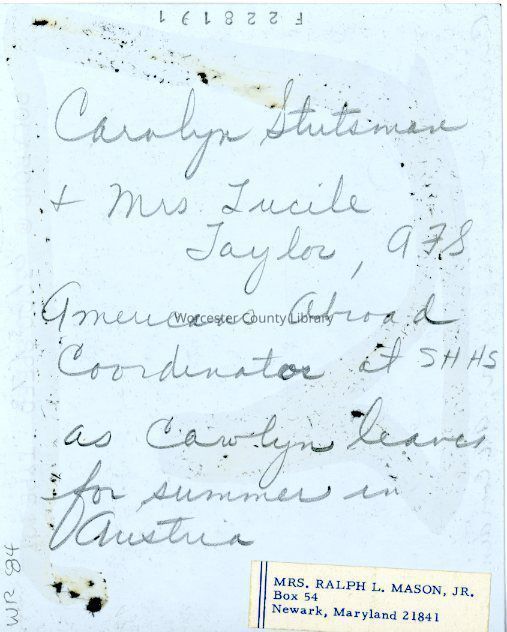 F228191
Carolyn Stutsman
+ Mrs Lucile
Taylor, AFS
Americans Abroad
Worcester County Library
Coordinator at SHHS
as Carolyn leaves
for summer in
Austria
WR 84
MRS. RALPH L. MASON, JR.
Box 54
Newark, Maryland 21841